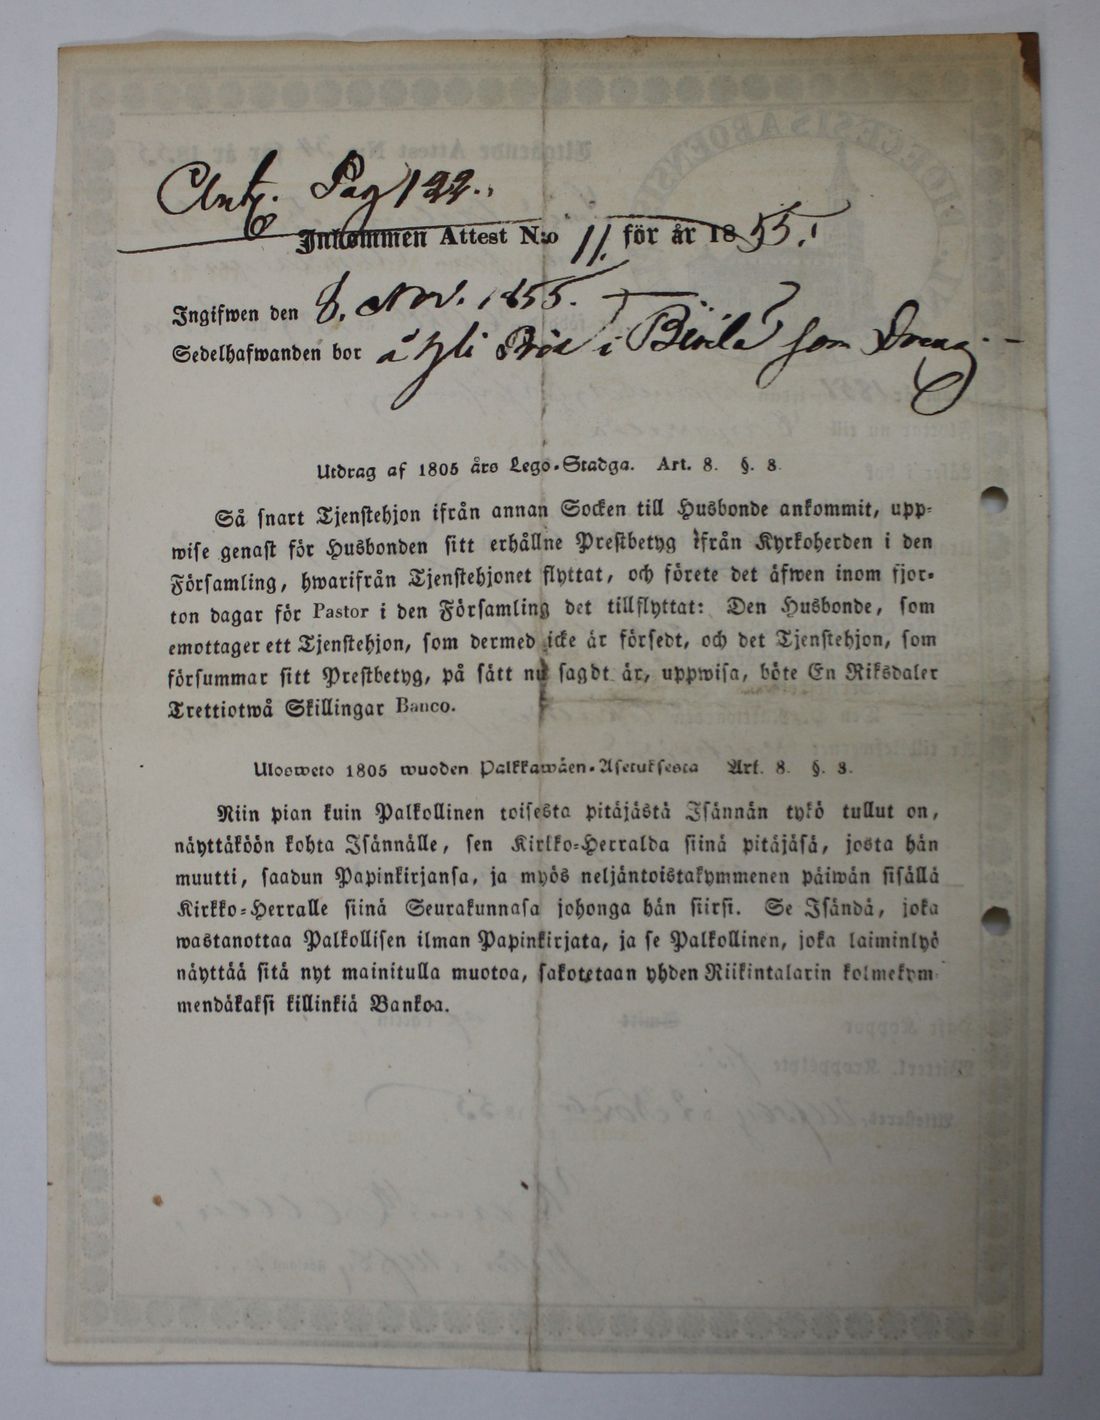 Pag 122.
Inkommen Attest N:o 11. för år 1855.
Ingifwen den 8. Nov. 1855.
Sedelhafwanden bor å Yli i som Dreng
Utdrag af 1805 års Lego-Stadga. Art. 8. §. 8.
Så snart Tjenstehjon ifrån annan Socken till Husbonde ankommit, upp-
wise genast för Husbonden sitt erhållne Prestbetyg ifrån Kyrkoherden i den
Församling, hwarifrån Tjenstehjonet flyttat, och förete det äfwen inom fjor-
ton dagar för Pastor i den Församling det tillflyttat: Den Husbonde, som
emottager ett Tjenstehjon, som dermed icke är försedt, och det Tjenstehjon, som
försummar sitt Prestbetyg, på sätt nu sagdt är, uppwisa, böte En Riksdaler
Trettiotwå Skillingar Banco.
Ulosweto 1805 wuoden Palkkawäen-Asetuksesta Art. 8. §. 8.
Niin pian kuin Palkollinen toisesta pitäjästä Isännän tykö tullut on,
näyttäköön kohta Isännälle, sen Kirkko-Herralda siinä pitäjäsä, josta hän
muutti, saadun Papinkirjansa, ja myös neljäntoistakymmenen päiwän sisällä
Kirkko-Herralle siinä Seurakunnasa johonga hän siirsi. Se Isändä, joka
wastanottaa Palkollisen ilman Papinkirjata, ja se Palkollinen, joka laiminlyö
näyttää sitä nyt mainitulla muotoa, sakotetaan yhden Riikintalarin kolmekym
mendäkaksi killinkiä Bankoa.